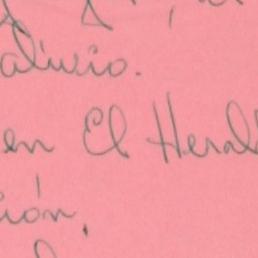 alivio.
en El Heral
ción.